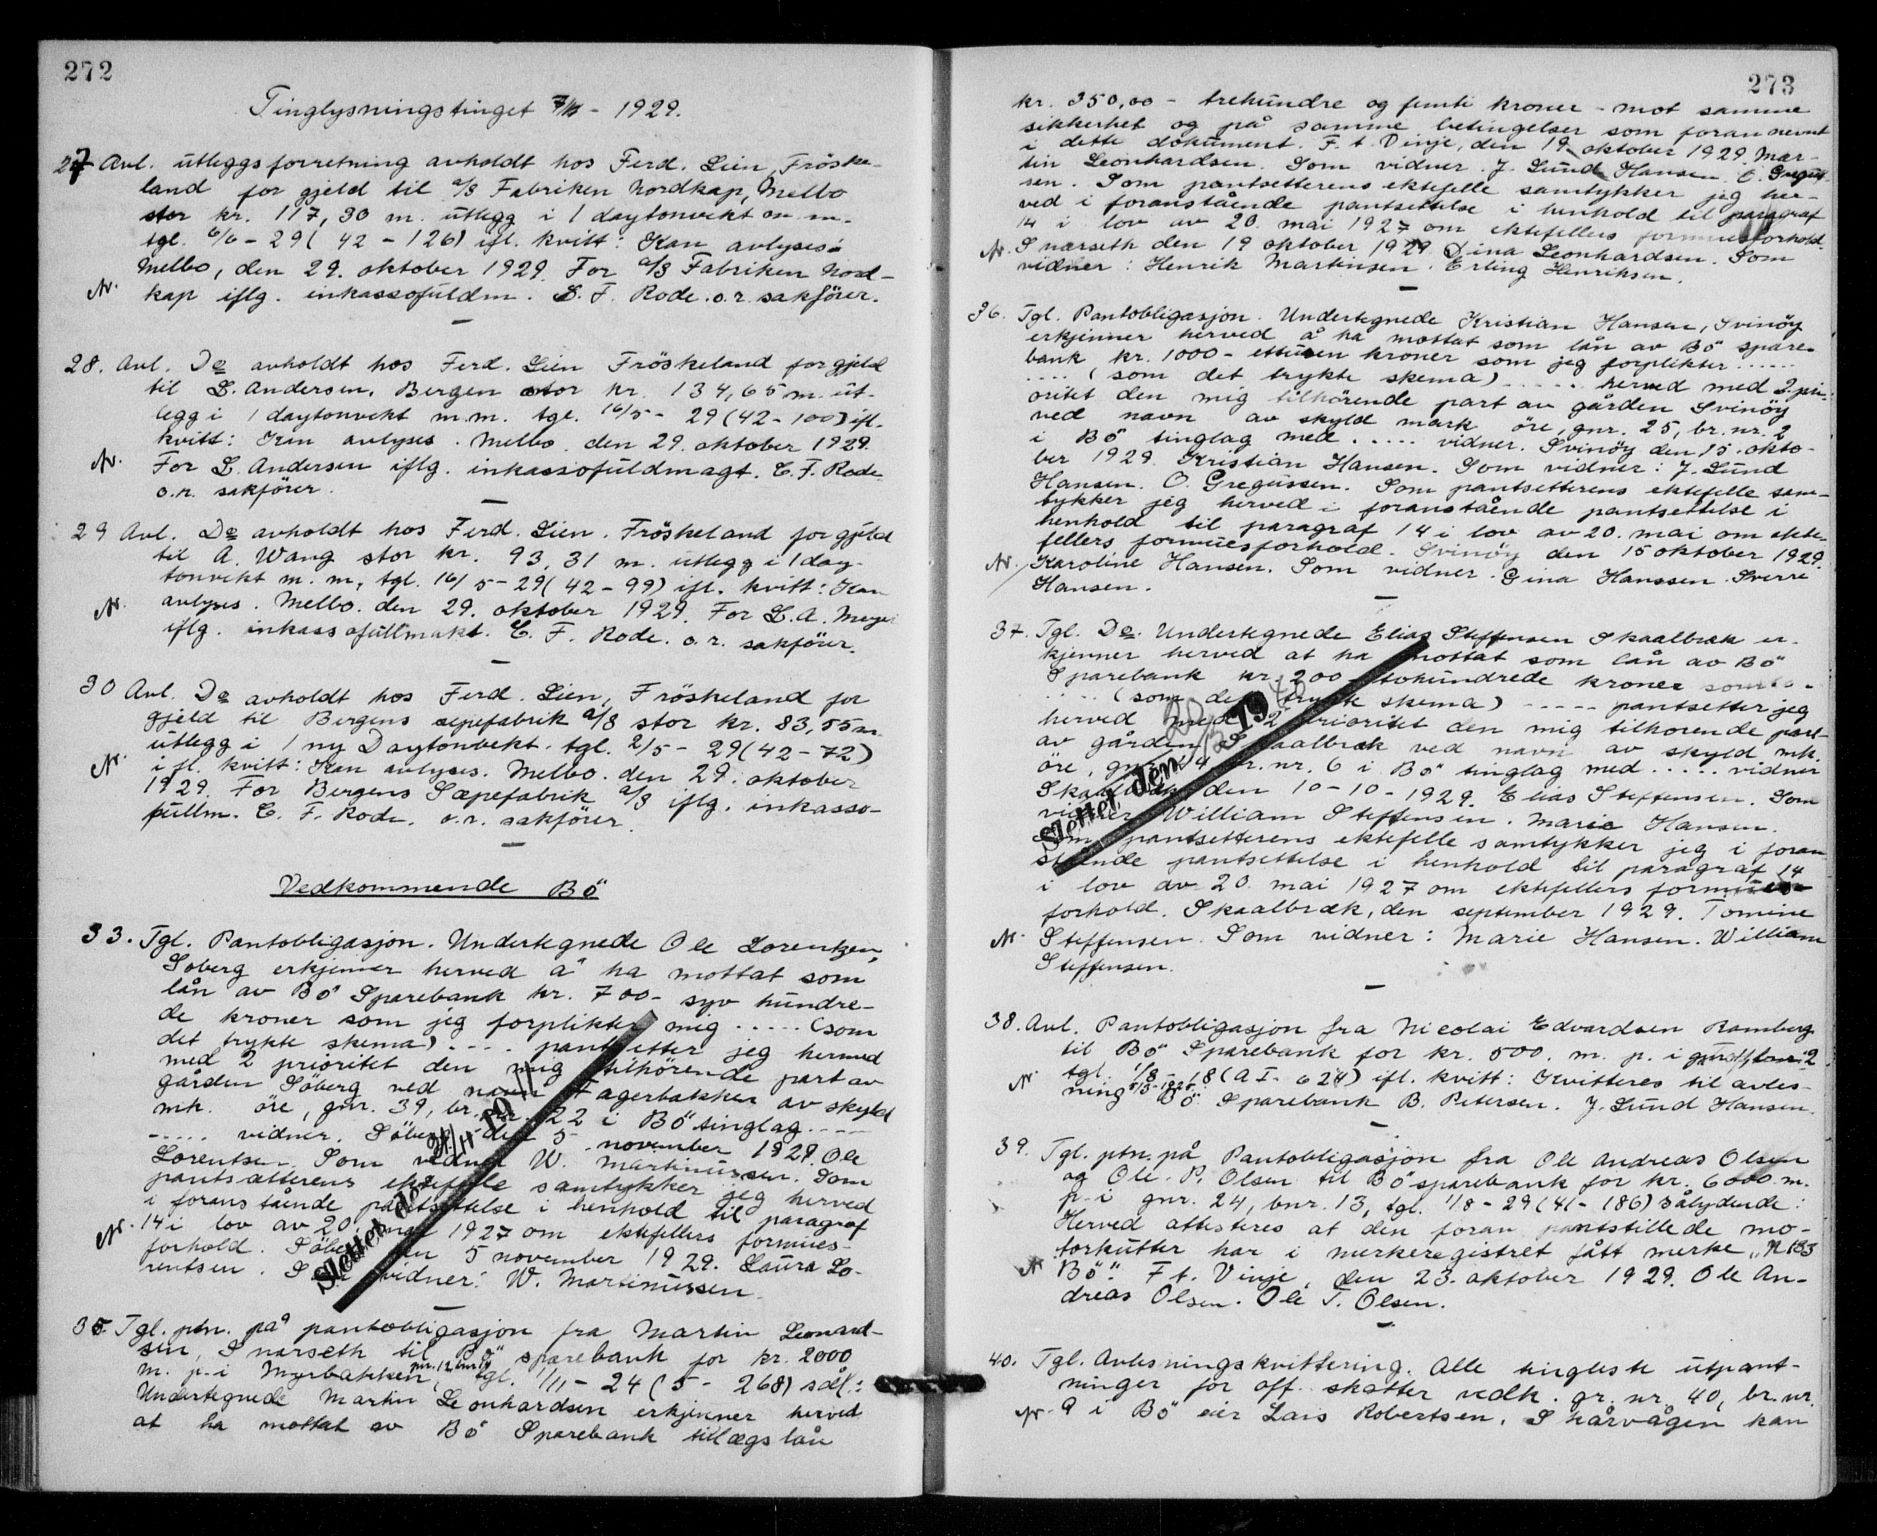 272
Tinglysningstinget 7/11 - 1929.
27 Avl. utleggsforretning avholdt hos Ferd. Lien, Fröske-
land for gjeld til A/S Fabriken Nordkap, Melbo
stor kr. 117,30 m. utlegg i 1 daytonvekt m. m.
tgl. 6/6 - 29 ( 42 - 126) ifl. kvitt: Kan avlyses:
Melbo, den 29. oktober 1929. For A/S Fabriken Nord-
N. kap iflg. inkassofuldm. C. F. Rode. o.r. sakförer.
28. Avl. Do avholdt hos Ferd. Lien Fröskeland for gjeld
til L. Andersen, Bergen stor kr. 134,65 m. ut-
legg i 1 daytonvekt m.m. tgl. 16/5 - 29 (42 - 100) ifl.
kvitt: Kan avlyses. Melbo. den 29. oktober 1929.
N. For L. Andersen iflg. inkassofuldmagt. C. F. Rode
o.r. sakförer.
29 Avl. Do avholdt hos Ferd. Lien. Fröskeland for gjeld
til A. Wang stor kr. 93,31 m. utlegg i 1 day-
tonvekt m. m, tgl. 16/5 - 29 ( 42 - 99) ifl. kvitt: Kan
N. avlyses. Melbo. den 29. oktober 1929. For L. A. Meyer
iflg. inkassofullmakt. C. F. Rode. o.r. sakförer.
30 Avl. Do avholdt hos Ferd. Lien, Fröskeland for
gjeld til Bergens sepefabrik A/S stor kr. 83,55 m.
utlegg i 1 ny Daytonvekt. tgl. 2/5 - 29 (42 - 72)
N. ifl. kvitt: Kan avlyses. Melbo. den 29. oktober
1929. For Bergens Sæpefabrik A/S iflg. inkasso-
fullm. C. F. Rode. o.r. sakförer.
Vedkommende Bö
33. Tgl. Pantobligasjon. Undertegnede Ole Lorentzen,
Söberg erkjenner herved å ha mottat som
lån av Bö Sparebank kr. 700 - syv hundre-
de kroner som jeg forplikter mig ..... (som
det trykte skema) .... pantsetter jeg herved
med 2 prioritet den mig tilhörende part av
gården Söberg ved navn Fagerbakken av skyld
mk. öre, gnr. 39, br. nr. 22 i Bö tinglag ----
..... vidner. Söberg den 5 november 1929. Ole
Lorentsen. Som vidner W. Martinussen. Som
pantsætterens ektefelle samtykker jeg herved
i foranstående pantsettelse i henhold til paragraf
N. 14 i lov av 20. mai 1927 om ektefellers formues-
forhold. Söberg den 5 november 1929. Laura Lo-
rentsen. Som vidner: W. Martinussen.
Slettet den
35. Tgl. ptn. på pantobligasjon fra Martin Leonard-
sen, Snarseth til Bö sparebank for kr. 2000
m. p. i Myrbakken, tgl. 1/11 - 24 ( 5 - 268) sål.:
Undertegnede Martin Leonhardsen erkjenner herved
at ha mottat av Bö Sparebank tillægslån
273
kr. 350,00 - trehundre og femti kroner - mot samme
sikkerhet og på samme betingelser som foran nevnt
i dette dokument. F. t. Vinje, den 19. oktober 1929. Mar-
tin Leonhardsen. Som vidner. J. Lund Hansen. O. Gregus-
sen. Som pantsetterens ektefelle samtykker jeg her-
ved i foranstående pantsettelse i henhold til paragraf
14 i lov av 20. mai 1927 om ektefellers formuesforhold.
N. Snarseth den 19 oktober 1929. Dina Leonhardsen. Som
vidner: Henrik Martinsen. Erling Henriksen.
36. Tgl. Pantobligasjon. Undertegnede Kristian Hansen, Svinöy
erkjenner herved å ha mottat som lån av Bö spare-
bank kr. 1000 - ettusen kroner som jeg forplikter ......
.... (som det trykte skema) ...... herved med 2. pri-
oritet den mig tilhörende part av gården Svinöy
ved navn av skyld mark öre, gnr. 25, br. nr. 2
i Bö tinglag med ..... vidner. Svinöy den 15. okto-
ber 1929. Kristian Hansen. Som vidner: J. Lund
Hansen. O. Gregussen. Som pantsetterens ektefelle sam-
tykker jeg herved i foranstående pantsettelse i
henhold til paragraf 14 i lov av 20. mai om ekte-
fellers formuesforhold. Svinöy den 15 oktober 1929.
N. Karoline Hansen. Som vidner. Gina Hanssen. Sverre
Hansen.
37. Tgl. Do. Undertegnede Elias Steffensen Skaalbræk er-
kjenner herved at ha mottat som lån av Bö
Sparebank kr. 200 - tohundrede kroner som
..... (som det trykte skema) ----- pantsetter jeg
herved med 2 prioritet den mig tilhorende part
av gården Skaalbræk ved navn av skyld mk.
öre, gnr. br. nr. 6 i Bö tinglag med ..... vidner
Skaalbræk den 10 - 10 - 1929. Elias Steffensen. Som
vidner William Steffensen. Marie Hansen.
Som pantsetterens ektefelle samtykker jeg i foran
stående pantsettelse i henhold til paragraf 14
i lov av 20. mai 1927 om ektefellers formues
forhold. Skaalbræk, den september 1929. Tomine
N. Steffensen. Som vidner: Marie Hansen. William
Steffensen.
Slettet den 19
38. Avl. Pantobligasjon fra Nicolai Edvardsen Ramberg
til Bö Sparebank for kr. 500. m. p. i
N. tgl. 1/8 - 18 (A I - 624) ifl. kvitt: Kvitteres til avles-
ning Bö Sparebank B. Petersen. J. Lund Hansen.
39. Tgl. ptn. på Pantobligasjon fra Ole Andreas Olsen
og Ole. P. Olsen til Bö sparebank for kr. 6000 m.
p. i gnr. 24, bnr. 13, tgl. 1/8 - 29 (41 - 186) sålydende:
Herved attesteres at den foran pantstillede mo-
torkutter har i merkeregistret fått merke „N 133
N. Bö". F. t. Vinje, den 23. oktober 1929. Ole An-
dreas Olsen. Ole T. Olsen.
40. Tgl. Avlesningskvittering. Alle tingleste utpant-
ninger for off. skatter vedk. gr. nr. 40, br. nr.
N. 9 i Bö eier Lars Robertsen, Skårvågen kan